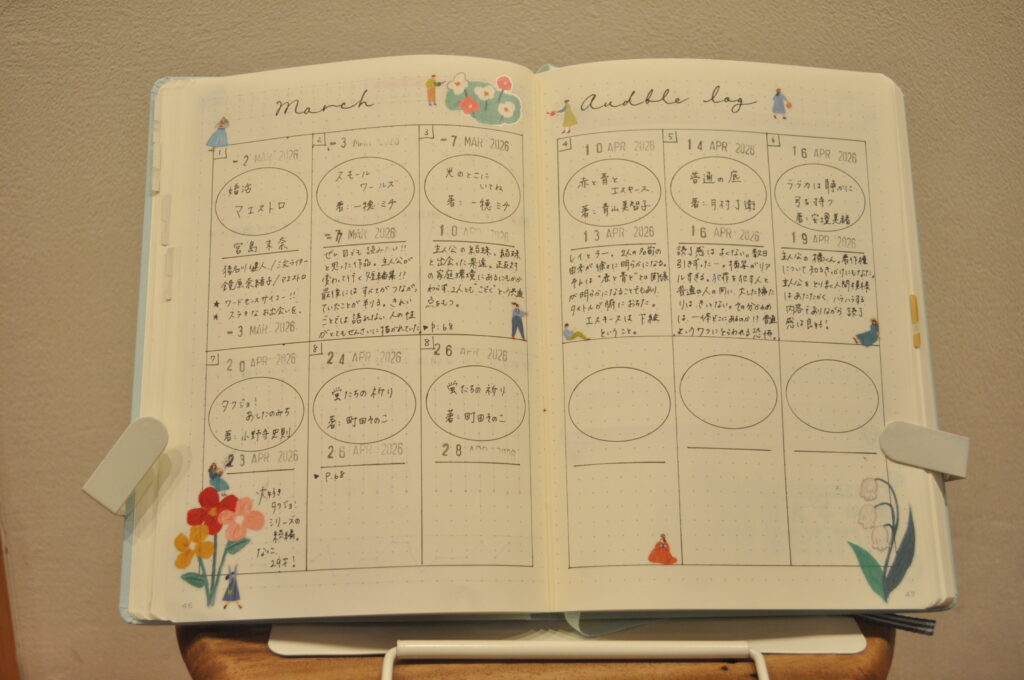 March
Audible log
1
-2 MAR 2026
婚活
マエストロ
宮島未奈
猪名川健人/三次ライター
鏡原奈緒子/マエストロ
★ ワードセンスサイコー!!
★ ステキなお出会いを。
-3 MAR 2026
2
-3 MAR 2026
スモール
ワールズ
著:一穂ミチ
-7 MAR 2026
ぜひ目でも読みたい!!
と思った作品。主人公が
変わって行く短編集!!
最後にはすべてがつながっ
ていたことが判る。きれい
ごとでは語れない人の性
がとてもせんさいに描かれていた。
3
-7 MAR 2026
光のとこに
いてね
著:一穂ミチ
10 MAR 2026
主人公の結珠
と出会った果遠。正反対
の家庭環境にあるにもかか
わらず、2人とも"こどく"という共通
点をもつ。
▶P.68
4
10 APR 2026
赤と青と
エスキース
著:青山美智子
13 APR 2026
レイとブー。2人の名前の
由来が徐々に明らかになる。
タイトルが腑におちた。
エスキースは下絵
ということ。
5
14 APR 2026
普通の底
著:月村了衛
16 APR 2026
読了感はよくない。数日
引きずった…。描写がリア
ルすぎる。犯罪を犯す人と
普通の人の間に、大した隔た
りは、きっとない。その分かれめ
は、一体どこにあるのか!?普通
というワクにとらわれる恐怖。
6
16 APR 2026
ラブカは静かに
弓を持つ
著:安壇美緒
19 APR 2026
主人公の橘くん。著作権
について知るきっかけにもなった。
主人公をとりまく人間模様
はあたたかく、ハラハラする
内容でありながら読了
感は良好!
7
20 APR 2026
タクジョ!
あしたのみち
著:小野寺史宜
23 APR 2026
大好き
タクジョ!
シリーズの
続編。
なつこ
29才!
8
24 APR 2026
蛍たちの祈り
著:町田そのこ
26 APR 2026
▶P.68
8
26 APR 2026
蛍たちの祈り
著:町田そのこ
28 APR 2026
46
47